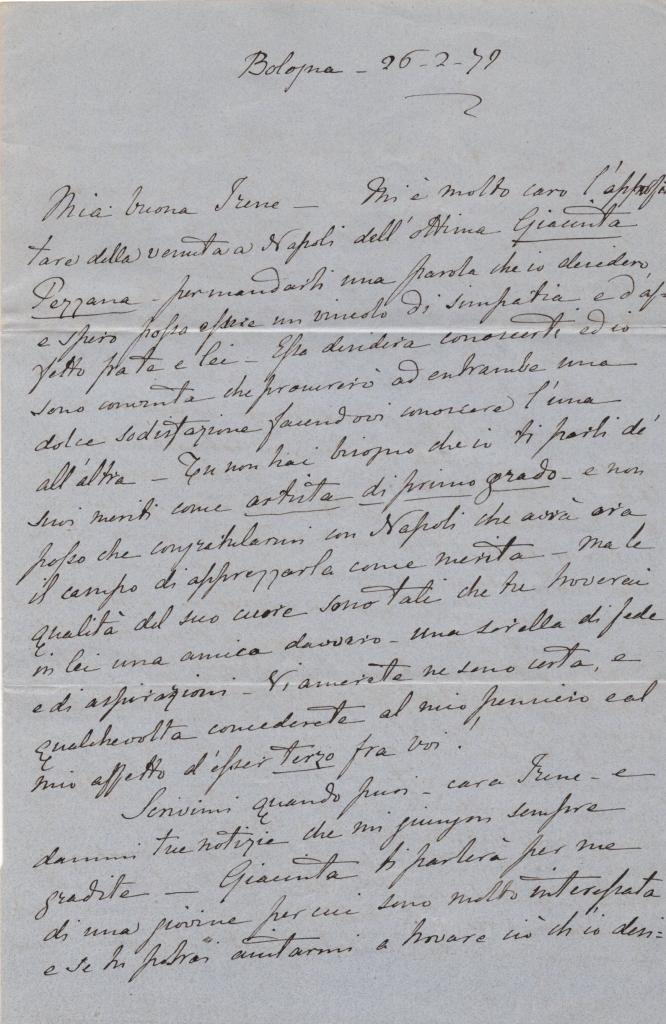 Bologna - 26-2-79
Mia buona Irene - Mi è molto caro l'approfit
tare della venuta a Napoli dell'ottima Giacinta
Pezzana - per mandarti una parola che io desidero
e spero possa essere un vincolo di simpatia e d'af
fetto fra te e lei - Essa desidera conoscerti, ed io
sono convinta che procurerò ad entrambe una
dolce sodisfazione facendovi conoscere l'una
all'altra - Tu non hai bisogno che io ti parli de'
suoi meriti come artista di primo grado - e non
posso che congratularmi con Napoli che avrà ora
il campo di apprezzarla come merita - ma le
qualità del suo cuore sono tali che tu troverai
in lei una amica davvero - una sorella di fede
e di aspirazioni - Vi amerete ne sono certa, e
qualchevolta concederete al mio pensiero e al
mio affetto d'esser terzo fra voi!
Scrivimi quando puoi - cara Irene - e
dammi tue notizie che mi giungon sempre
gradite - Giacinta ti parlerà per me
di una giovine per cui sono molto interessata
e se tu potrai aiutarmi a trovare ciò ch'io desi=